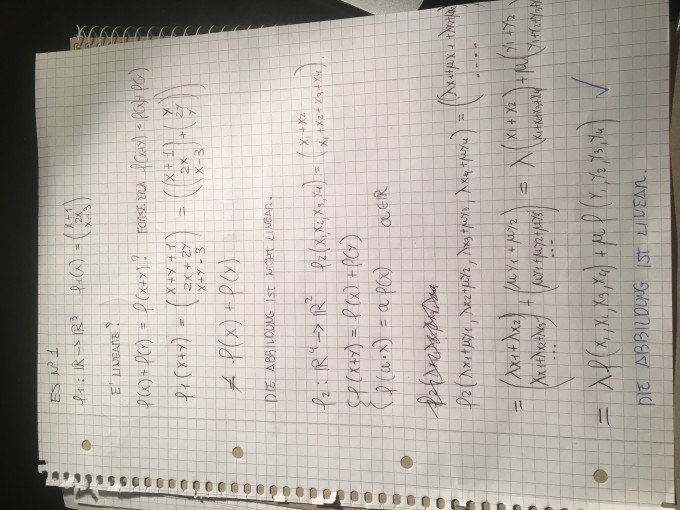 ES Nº 1
f₁ : ℝ → ℝ³ f₁(x) = (x+1 2x x-3)
E' LINEARE?
f(x) + f(y) = f(x+y)? f(x+y) = f(x)+f(y)
f₁(x+y) = (x+y+1 2x+2y x+y-3) = ((x+1 2x x-3) + (y 2y y))
≠ f(x) + f(y)
DIE ABBILDUNG IST NICHT LINEAR.
f₂ : ℝ⁴ → ℝ² f₂(x₁,x₂,x₃,x₄) = (x₁+x₂ x₁+x₂+x₃+x₄)
{ f(x+y) = f(x) + f(y)
f(a·x) = a f(x) a∈ℝ
f₂(λx₁+μy₁, λx₂+μy₂, λx₃+μy₃, λx₄+μy₄) = ((λx₁+μy₁) + .....)
= (λx₁+λx₂ λx₁+λx₂+λx₃...) + (μy₁+μy₂ μy₁+μy₂+μy₃...) = λ(x₁+x₂ x₁+x₂+x₃+x₄) + μ(y₁+y₂ y₁+y₂+y₃+y₄)
= λf(x₁,x₂,x₃,x₄) + μf(y₁,y₂,y₃,y₄) ✓
DIE ABBILDUNG IST LINEAR.